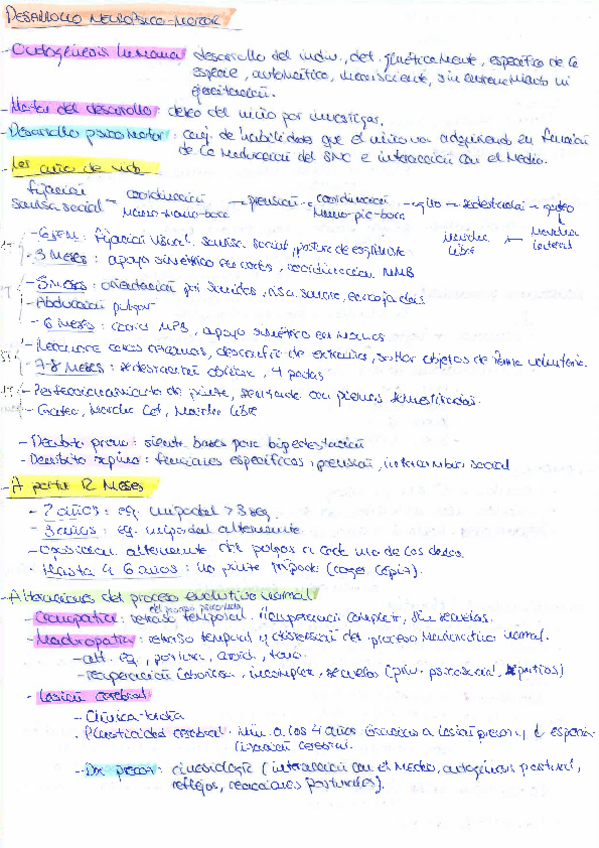 DESARROLLO NEUROPSICO-MOTOR
- Ontogénesis humana: desarrollo del indiv., det. genéticamente, específico de la
especie, automático, inconsciente, sin entrenamiento ni
ejercitación.
- Motor del desarrollo: deseo del niño por investigar.
- Desarrollo psicomotor: conj. de habilidades que el niño va adquiriendo en función
de la maduración del SNC e interacción con el medio.
- 1er año de vida
fijación
sonrisa social → coordinación
mano-mano-boca → prensión → coordinación
mano-pie-boca → giro → sedestación → gateo
marcha
libre ← marcha
lateral
- 6 sem: fijación visual, sonrisa social, postura de esgrimista
- 3 meses: apoyo simétrico en codos, coordinación MMB
- 5 meses: orientación por sonidos, risa sonora,
- Abducción pulgar
- 6 meses: coord MPB, apoyo simétrico en manos
- Reconoce caras extrañas, desconfía de extraños, soltar objetos de forma voluntaria.
- 7-8 meses: sedestación oblicua, 4 patas
- Perfeccionamiento de pinza, sentarse con piernas semiestiradas.
- Gateo, marcha lat, marcha libre
- Decúbito prono: sienta bases para bipedestación
- Decúbito supino: funciones específicas, prensión, intercambio social
- A partir 12 meses
- 2 años: eq. unipodal > 3 seg.
- 3 años: eq. unipodal alternante.
- Oposición alternante del pulgar a cada uno de los dedos.
- Hasta 4-6 años: no pinza trípode (coger lápiz).
- Alteraciones del proceso evolutivo normal
- Cronopatía: retraso temporal. Recuperación completa, sin secuelas.
- Madropatía: retraso temporal y distorsión del proceso madurativo normal.
- alt. eq., postura, coord., tono.
- recuperación laboriosa, incompleta, secuelas
- Lesión cerebral
- Clínica tardía
- Plasticidad cerebral. Máx. a los 4 años
lización cerebral.
- Dx precoz: cinesiología (interacción con el medio, ontogénesis postural,
reflejos, reacciones posturales).